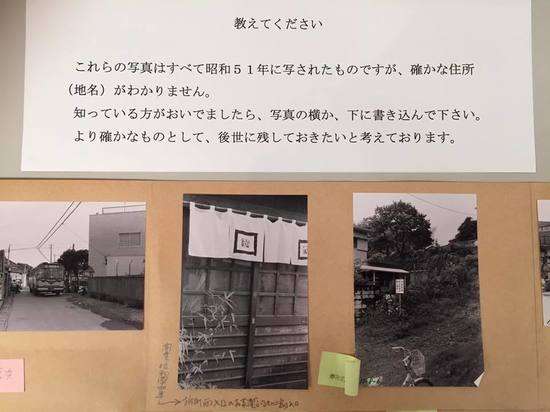 教えてください
これらの写真はすべて昭和５１年に写されたものですが、確かな住所
（地名）がわかりません。
知っている方がおいでましたら、写真の横か、下に書き込んで下さい。
より確かなものとして、後世に残しておきたいと考えております。